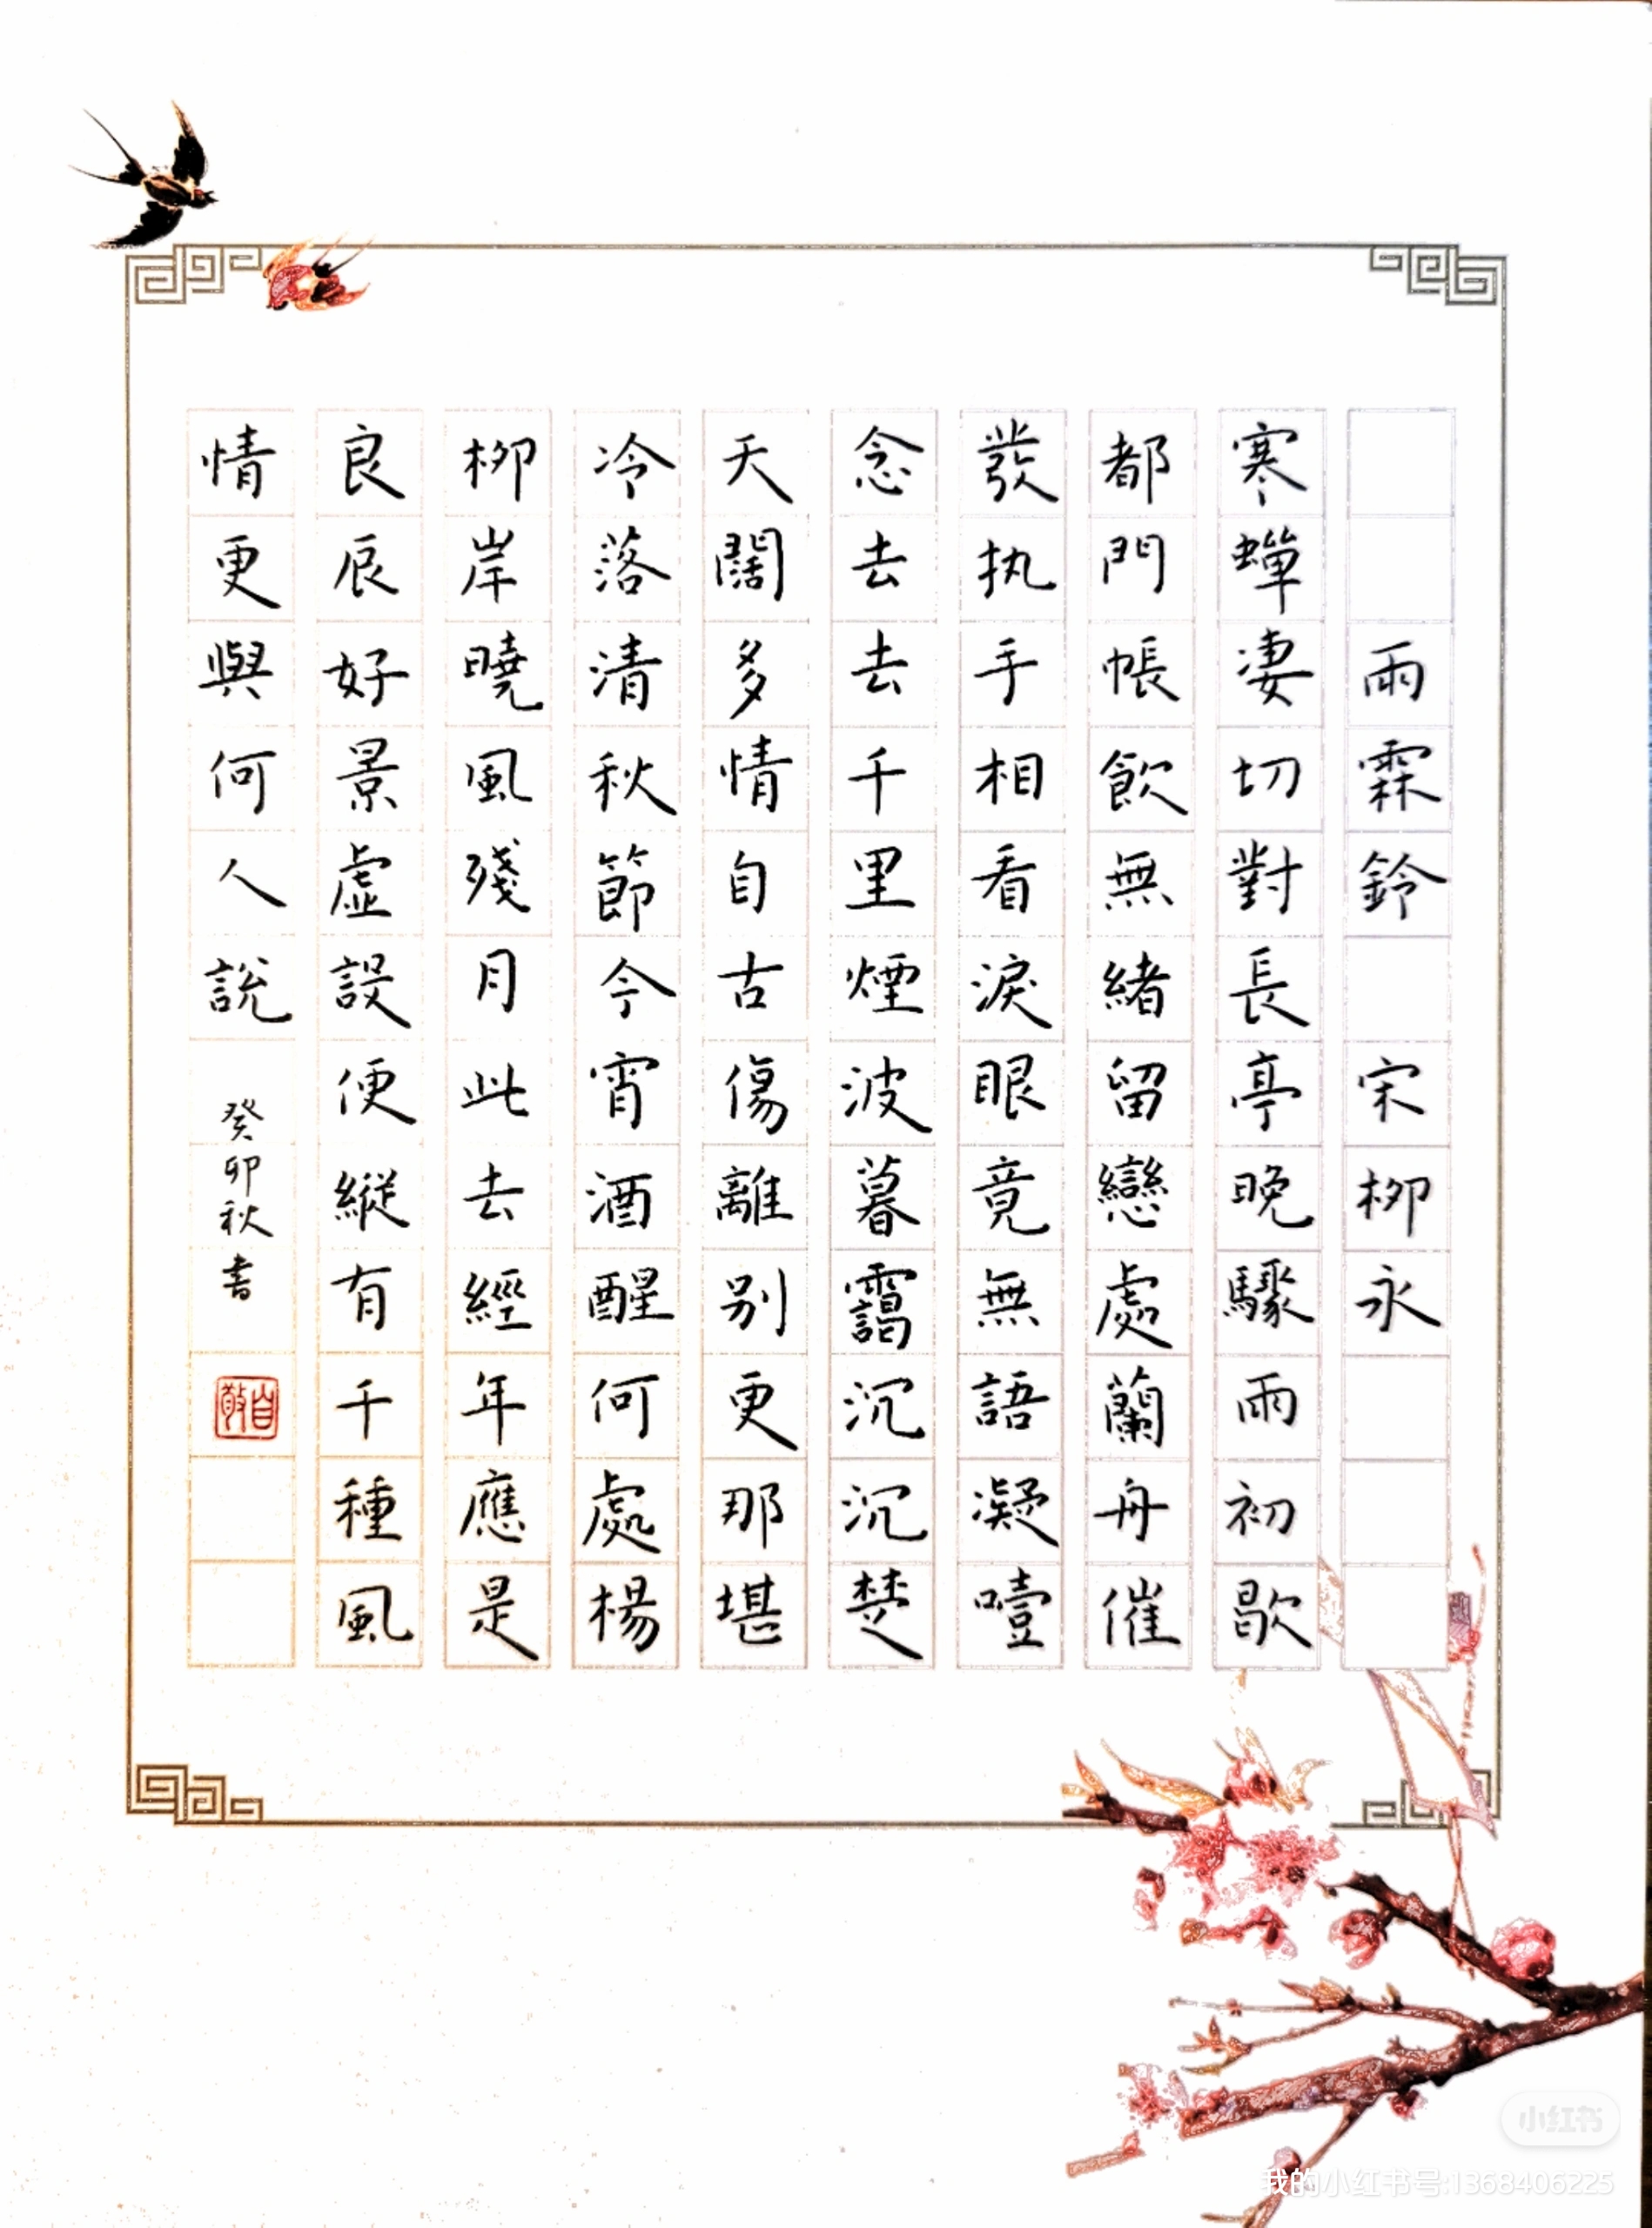 雨霖鈴 宋 柳永
寒蟬淒切對長亭晚驟雨初歇
都門帳飲無緒留戀處蘭舟催
發执手相看淚眼竟無語凝噎
念去去千里煙波暮靄沉沉楚
天闊多情自古傷離別更那堪
冷落清秋節今宵酒醒何處楊
柳岸曉風殘月此去經年應是
良辰好景虛設便縱有千種風
情更與何人說
癸卯秋書
小红书
我的小红书号:1368406225